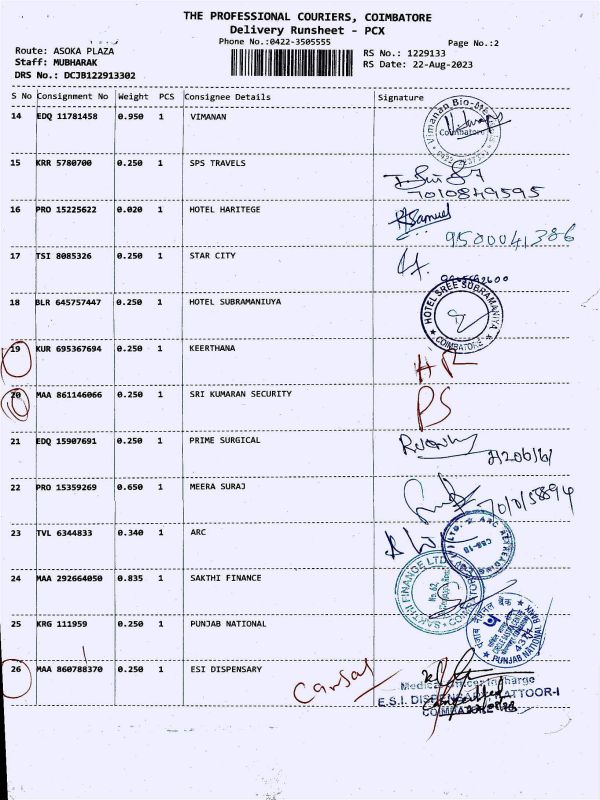 THE PROFESSIONAL COURIERS, COIMBATORE
Delivery Runsheet - PCX
Phone No.:0422-3505555
Page No.:2
Route: ASOKA PLAZA
RS No.: 1229133
Staff: MUBHARAK
RS Date: 22-Aug-2023
DRS No.: DCJB122913302
S No Consignment No Weight PCS Consignee Details Signature
14 EDQ 11781458 0.950 1 VIMANAN
Coimbatore
15 KRR 5780700 0.250 1 SPS TRAVELS
7010849595
16 PRO 15225622 0.020 1 HOTEL HARITEGE
Samuel
9500041386
17 TSI 8085326 0.250 1 STAR CITY
18 BLR 645757447 0.250 1 HOTEL SUBRAMANIUYA
HOTEL SREE SUBRAMANIYA
COIMBATORE
19 KUR 695367694 0.250 1 KEERTHANA
20 MAA 861146066 0.250 1 SRI KUMARAN SECURITY
PS
21 EDQ 15907691 0.250 1 PRIME SURGICAL
22 PRO 15359269 0.650 1 MEERA SURAJ
23 TVL 6344833 0.340 1 ARC
24 MAA 292664050 0.835 1 SAKTHI FINANCE
SAKTHI FINANCE LTD
25 KRG 111959 0.250 1 PUNJAB NATIONAL
PUNJAB NATIONAL BANK
26 MAA 860788370 0.250 1 ESI DISPENSARY
E.S.I. DISPENSARY